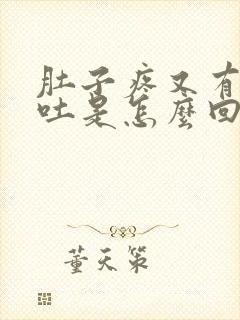 肚子疼又有
吐是怎麼回
董天策